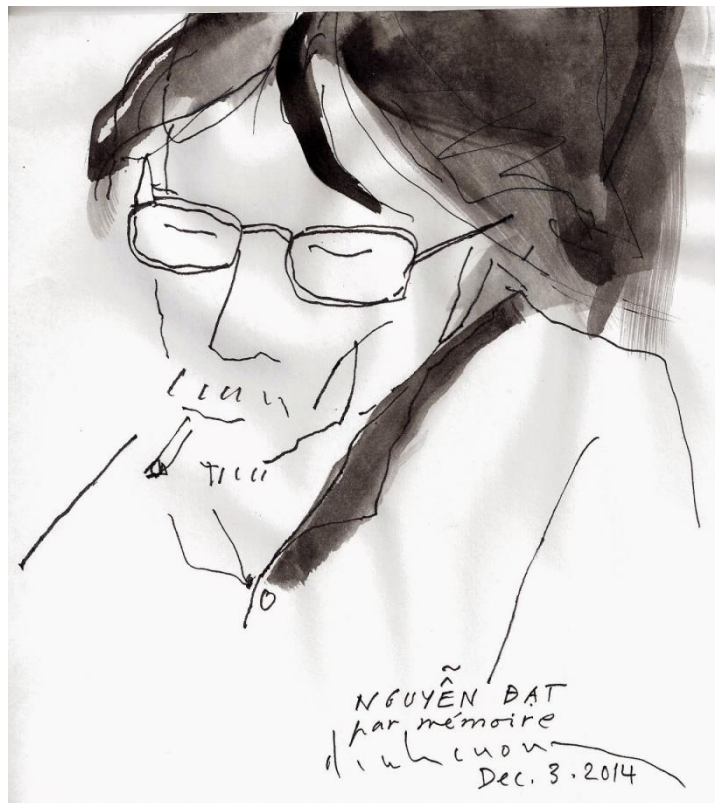 NGUYỄN ĐẠT
par mémoire
dinhcuong
Dec. 3. 2014